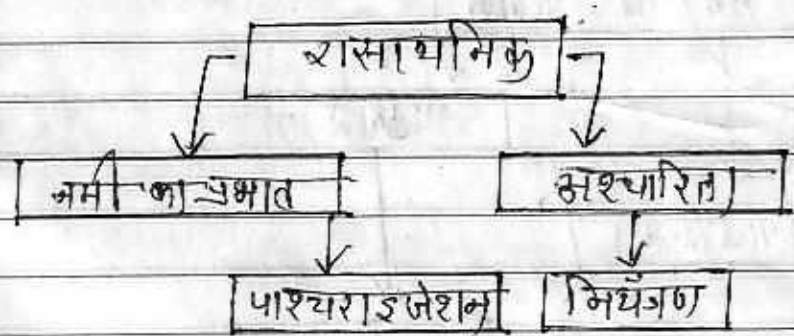 रासायनिक
नमी का प्रभात
पाश्चराइजेशन
नियँत्रण